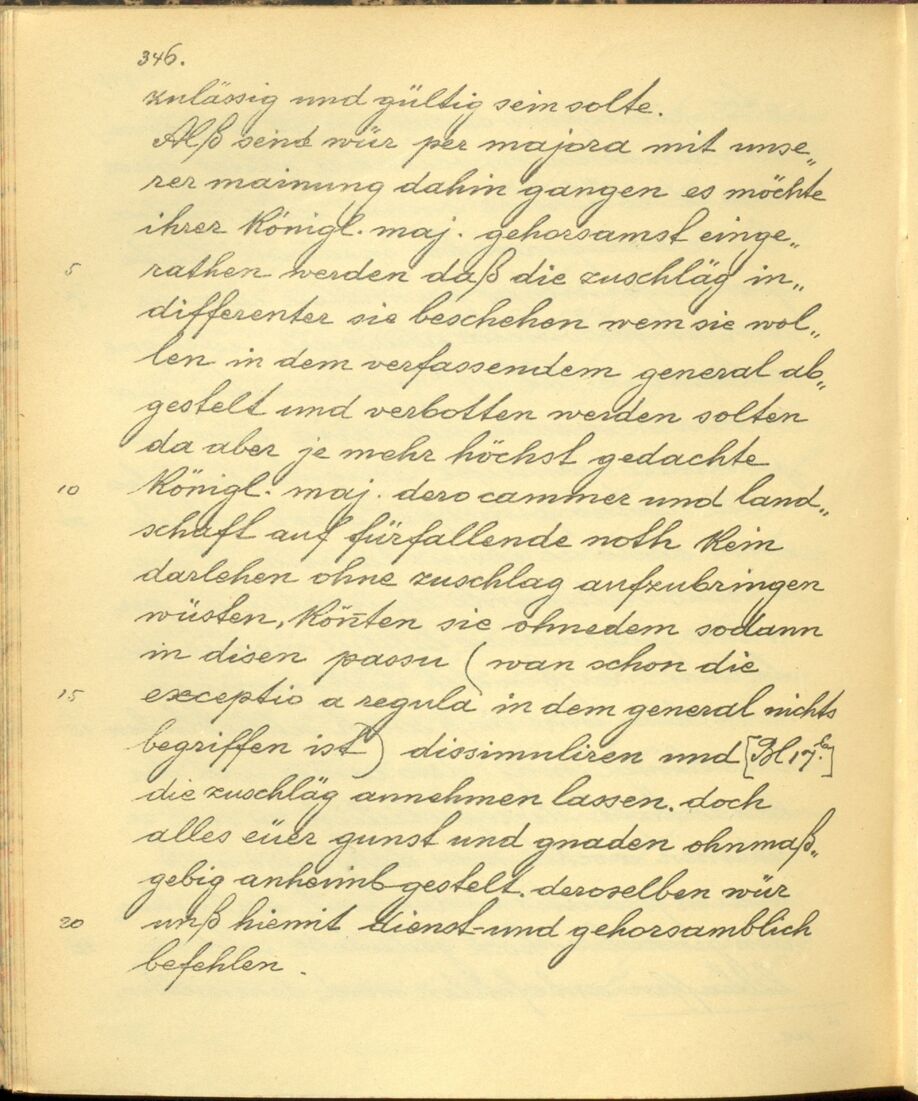 346.
zulässig und gültig sein solte.
Alß seind wür per majora mit unse„
rer mainung dahin gangen es möchte
ihrer Königl. maj. gehorsamst einge„
5 rathen werden daß die zuschläg in„
differenter sie beschehen wem sie wol„
len in dem verfassendem general ab„
gestelt und verbotten werden solten
da aber je mehr höchst gedachte
10 Königl. maj. dero cammer und land„
schaft auf fürfallende noth kein
darlehen ohne zuschlag aufzubringen
wüsten, kön̄ten sie ohnedem sodann
in disen passu (wan schon die
15 exceptio a regula in dem general nichts
begriffen ist) dissimuliren und [Bl 17.b]
die zuschläg annehmen lassen. doch
alles eüer gunst und gnaden ohnmaß„
gebig anheimb gestelt. deroselben wür
20 unß hiemit dienst- und gehorsamblich
befehlen.